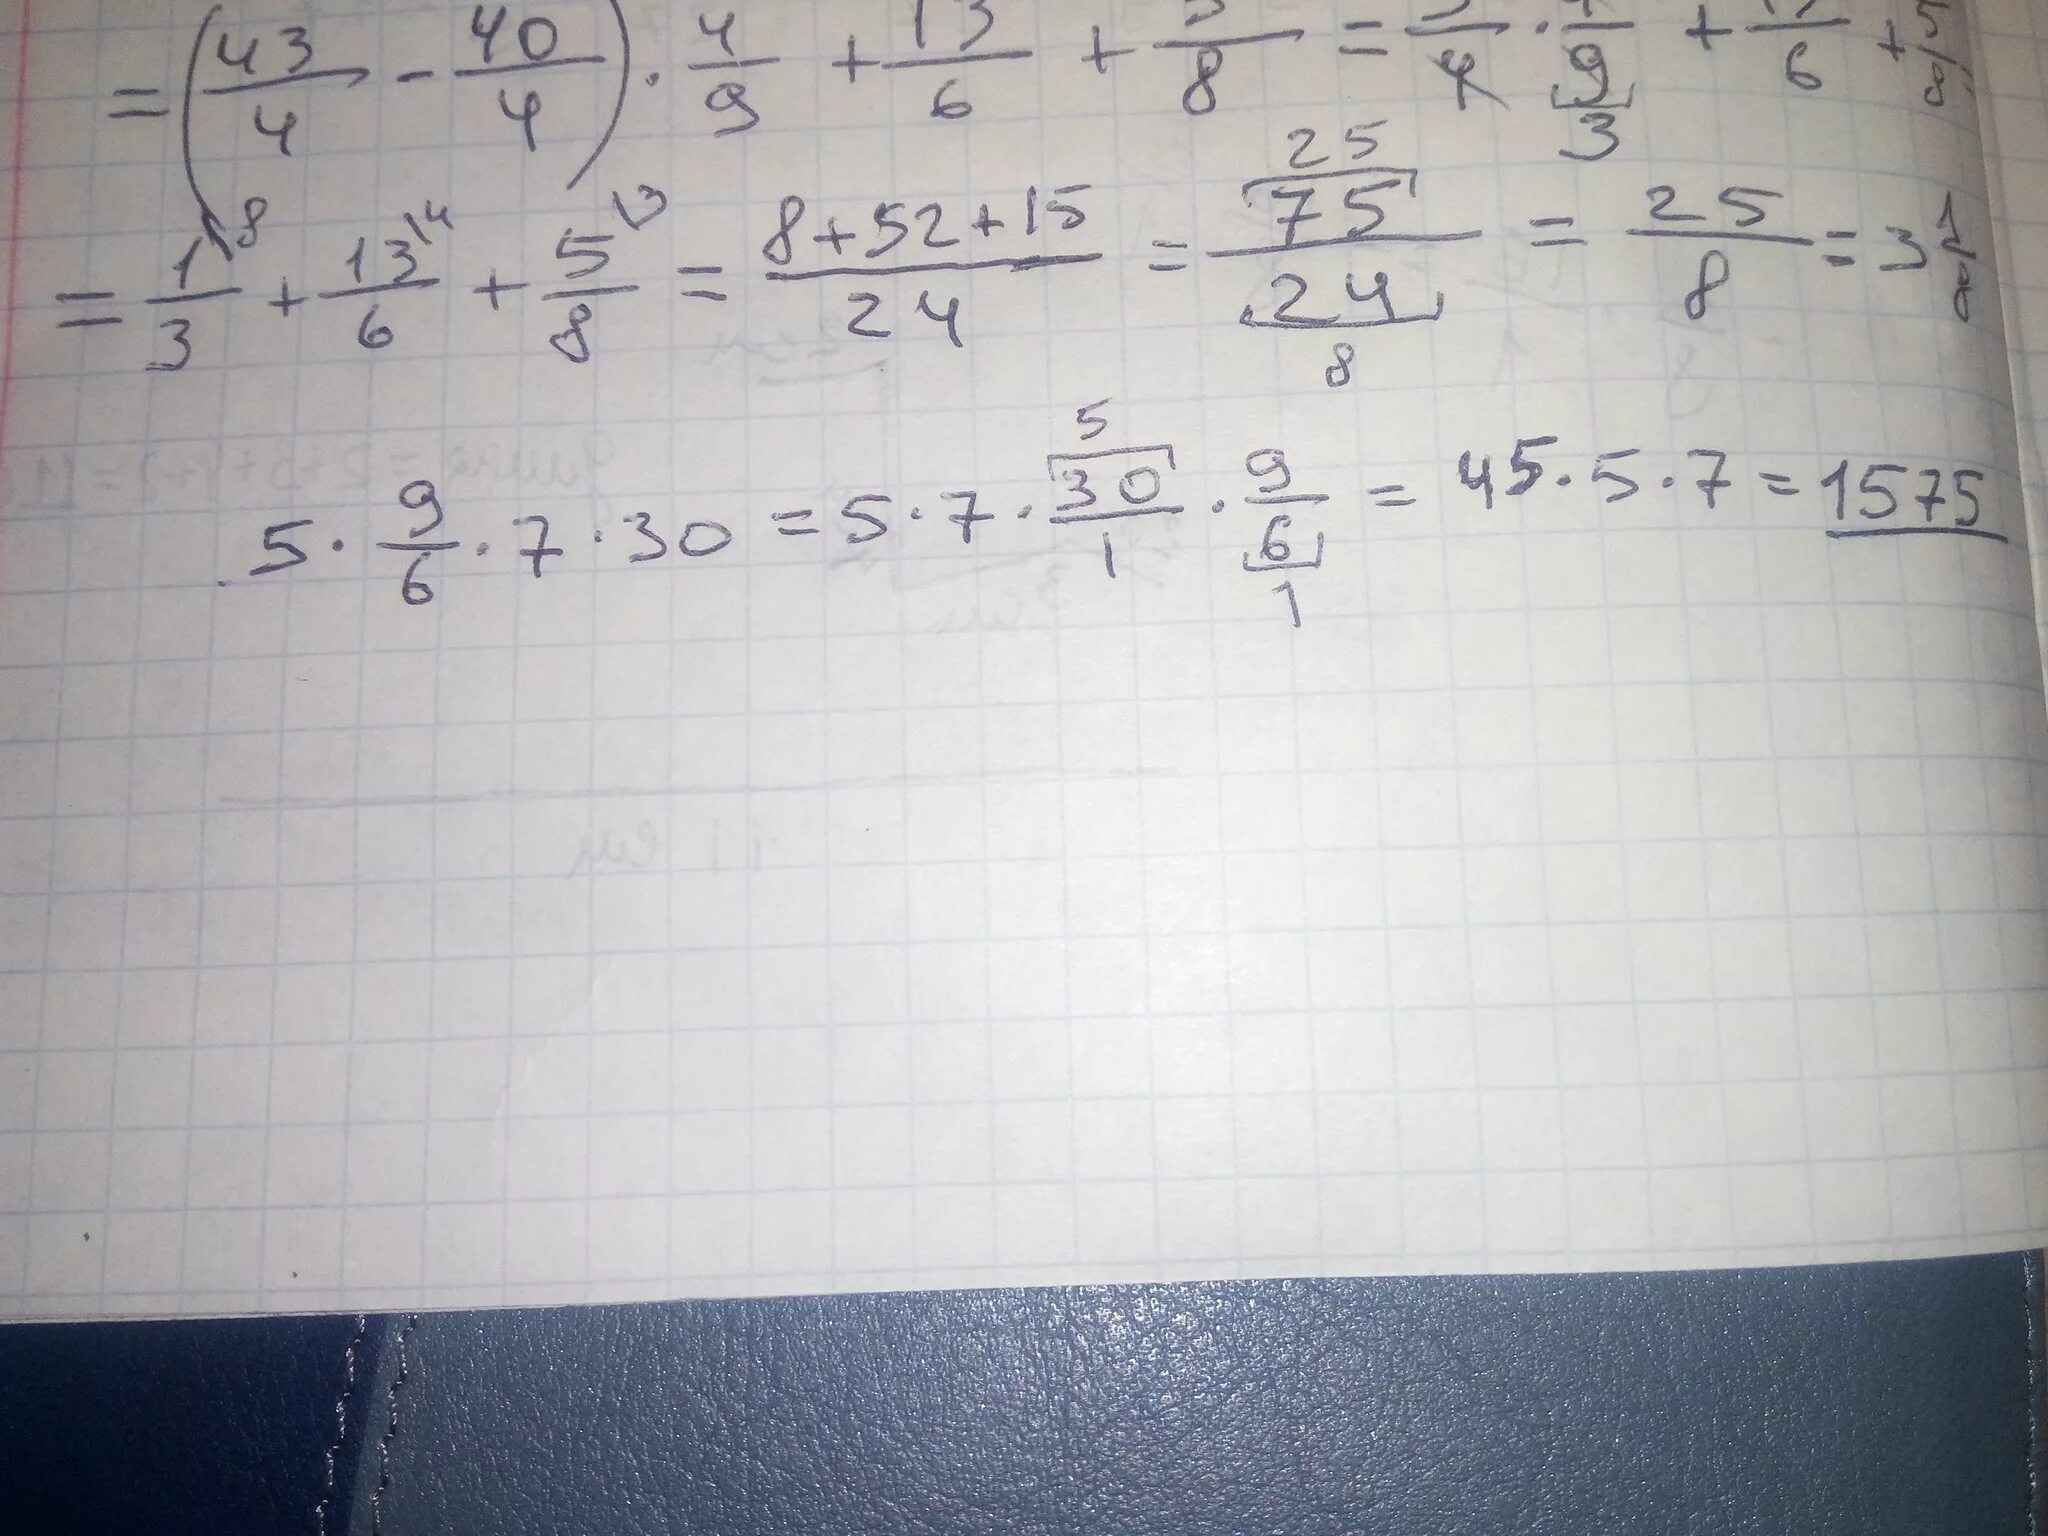 = (43/4 - 40/4) · 4/9 + 13/6 + 5/8 = 3/4 · 4/9 3 + 13/6 + 5/8
= 1/3 8 + 13/6 14 + 5/8 13 = 8+52+15/24 = 25 75/24 8 = 25/8 = 3 1/8
5 · 9/6 · 7 · 30 = 5 · 7 · 5 30/1 · 9/6 1 = 45 · 5 · 7 = 1575